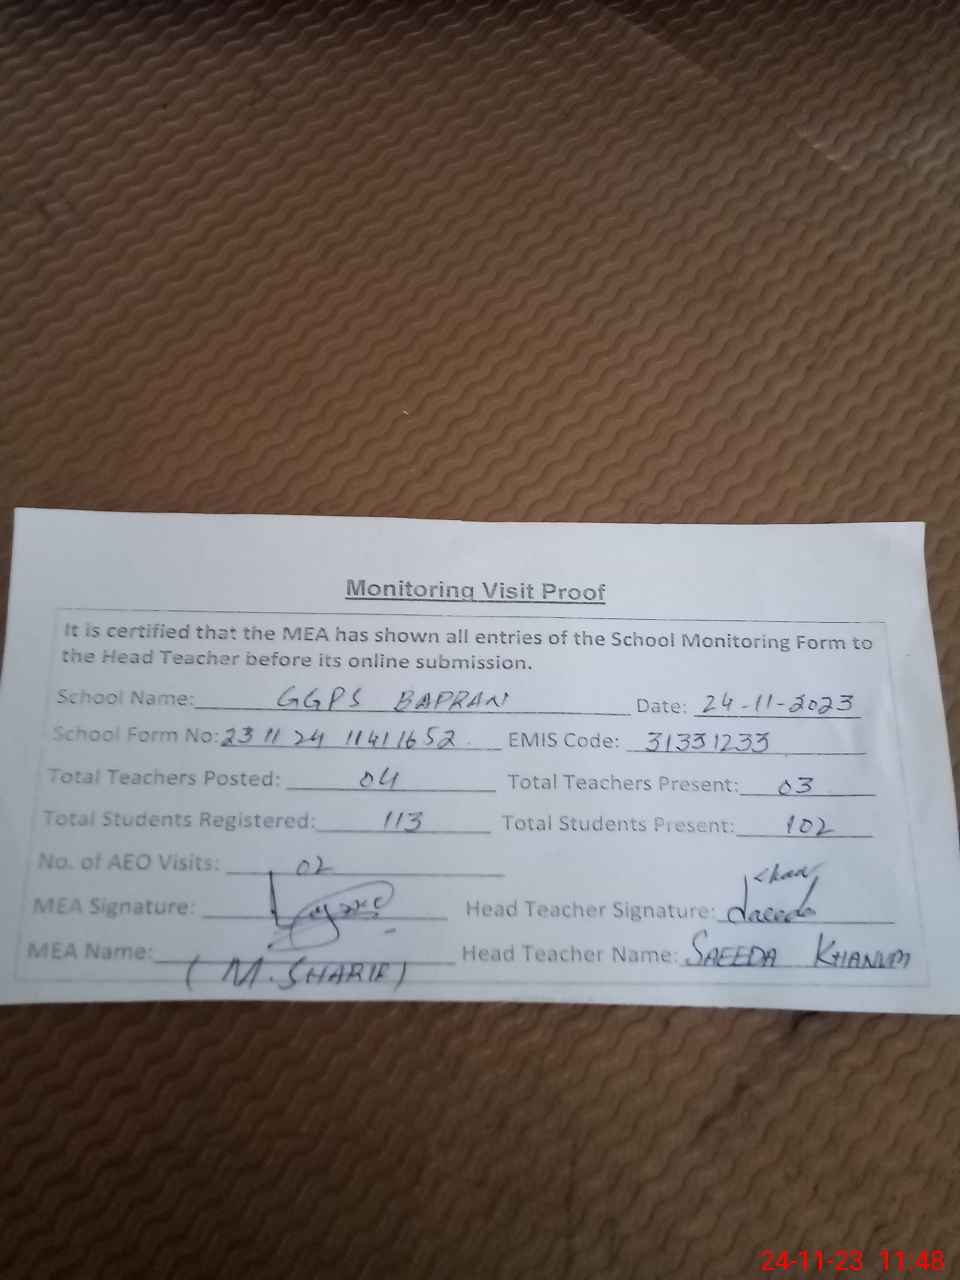 Monitoring Visit Proof
It is certified that the MEA has shown all entries of the School Monitoring Form to
the Head Teacher before its online submission.
School Name: GGPS BAPRAN Date: 24-11-2023
School Form No: 23 11 24 11411652 EMIS Code: 31331233
Total Teachers Posted: 04 Total Teachers Present: 03
Total Students Registered: 113 Total Students Present: 102
No. of AEO Visits: 02
MEA Signature: Head Teacher Signature: Saeeda
MEA Name: (M. SHARIF) Head Teacher Name: SAEEDA KHANUM
24-11-23 11:48